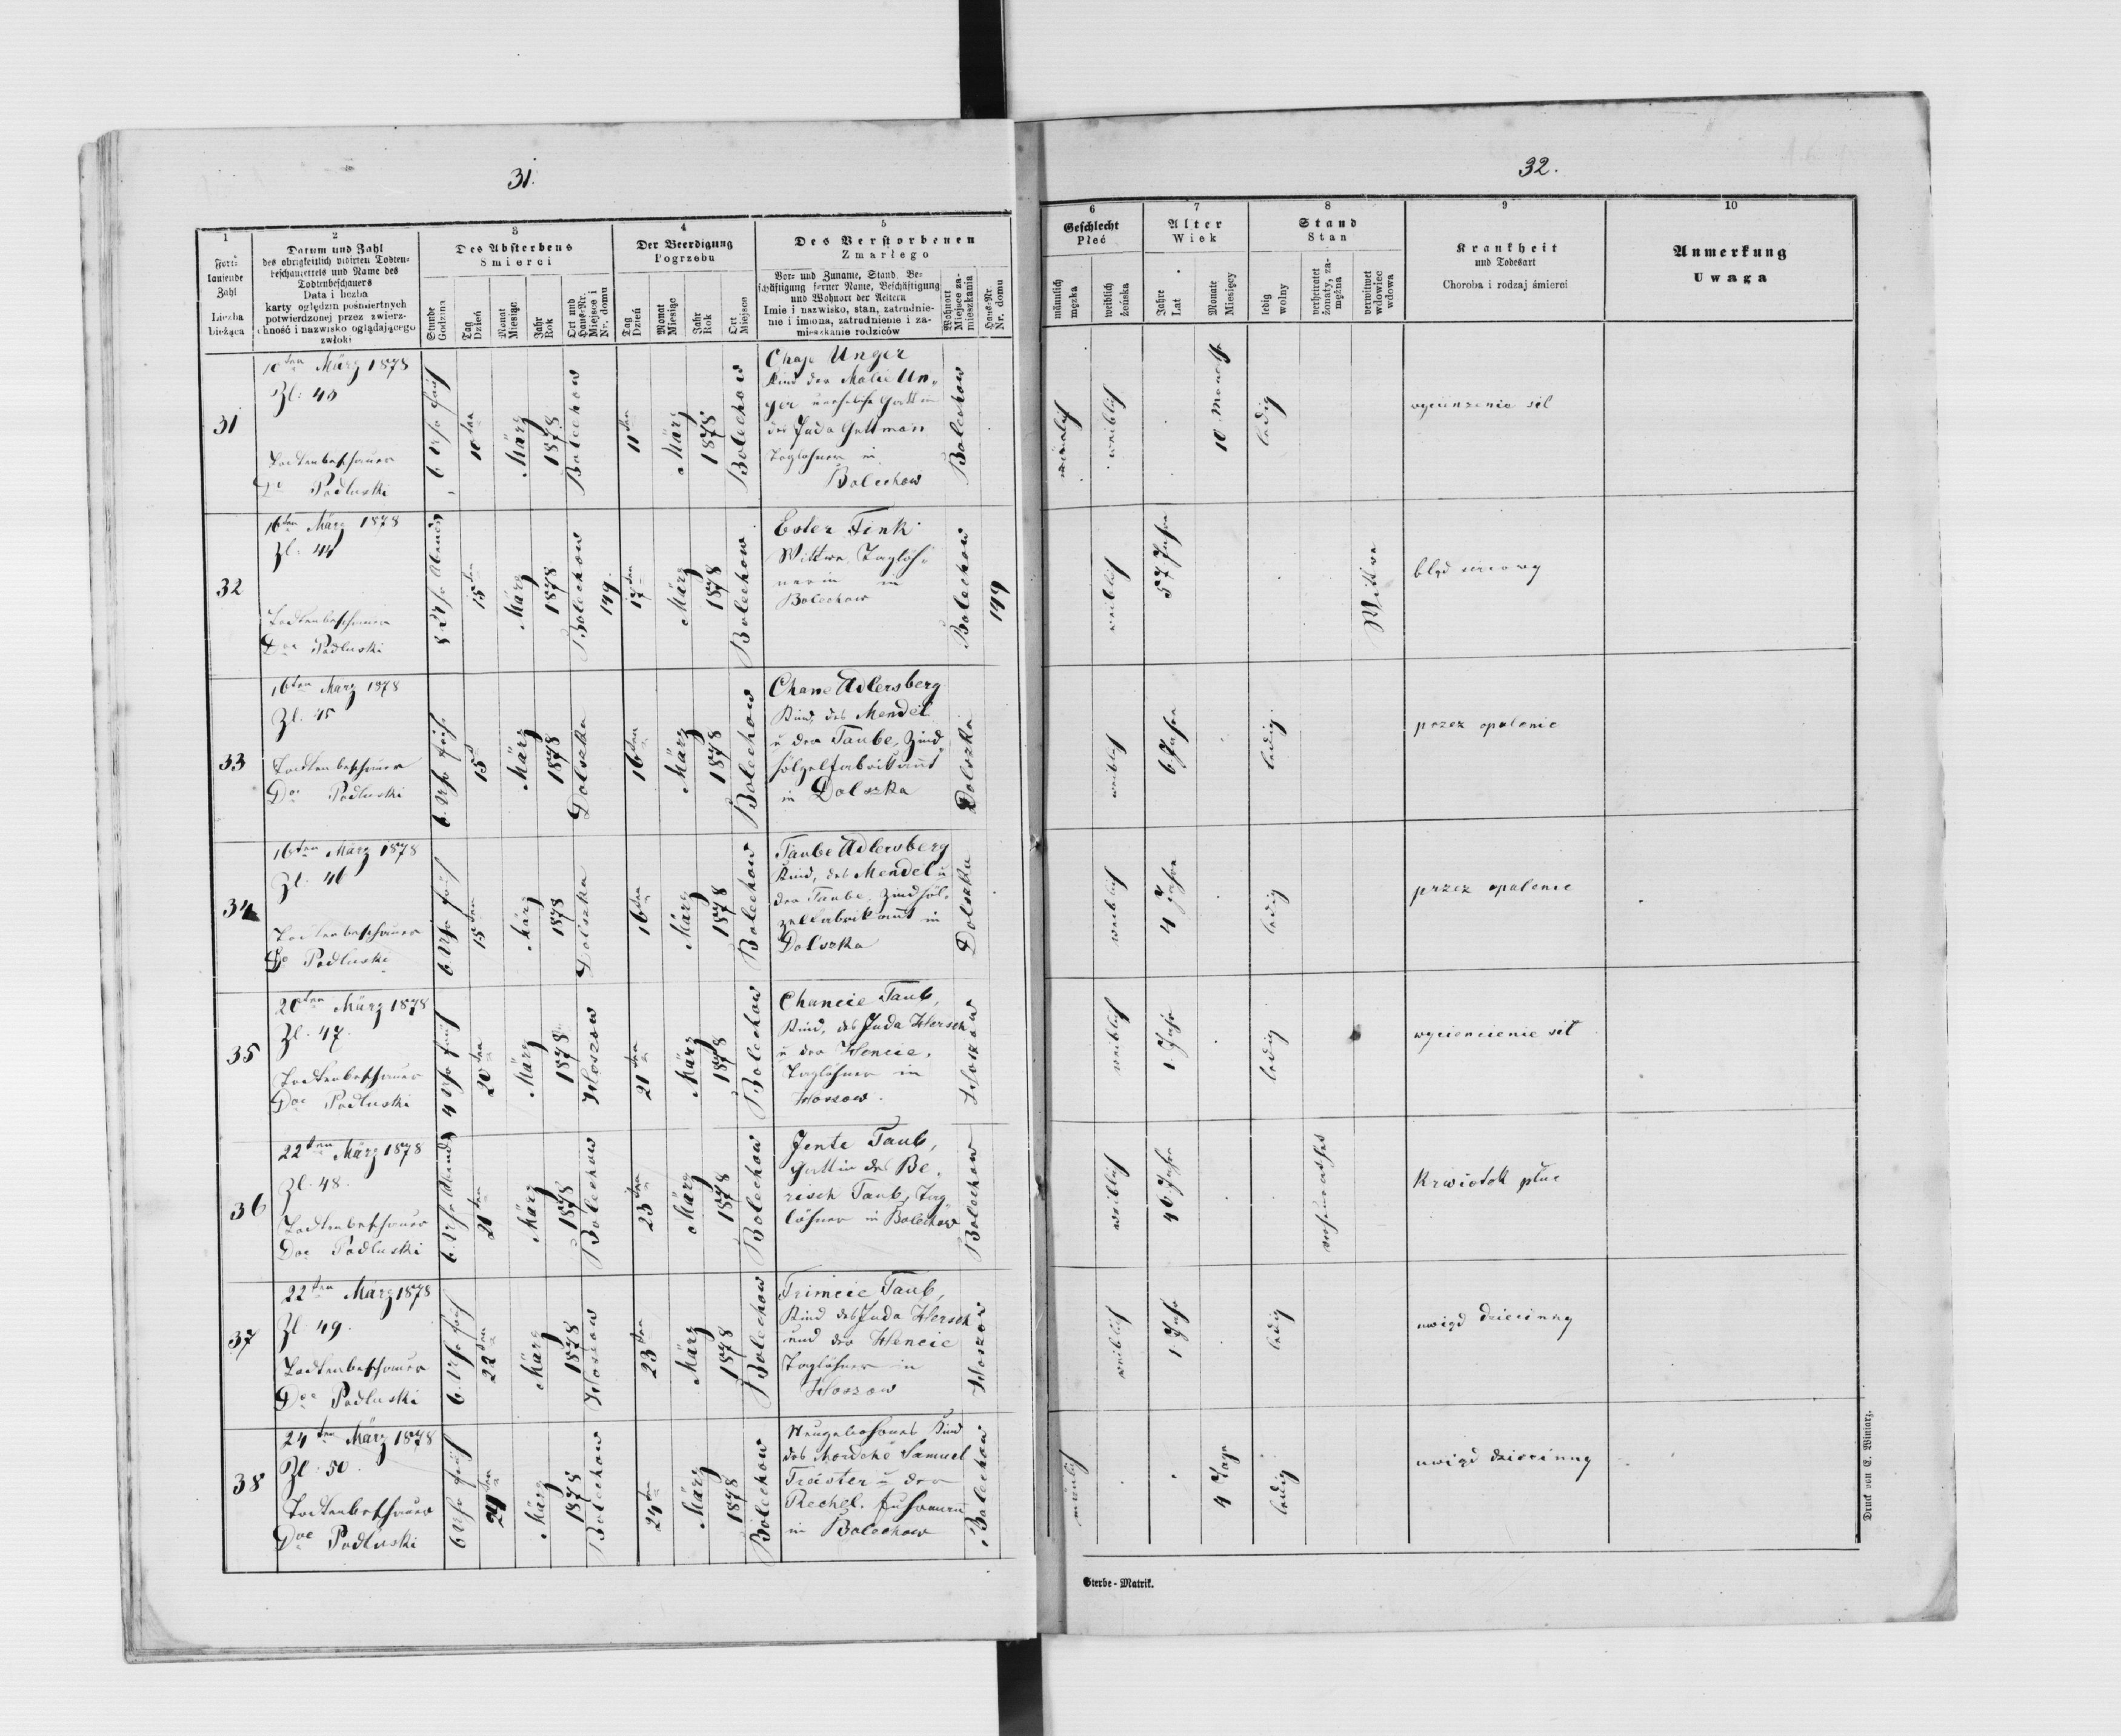 31.
32.
1
2
3
4
5
6
7
8
9
10
Fort-
laufende
Zahl
Liczba
bieżąca
Datum und Zahl
des obrigkeitlich vidirten Todten-
beschauzettels und Name des
Todtenbeschauers
Data i liczba
karty oględzin pośmiertnych
potwierdzonej przez zwierz-
chność i nazwisko oglądającego
zwłoki
Des Absterbens
Śmierci
Stunde
Godzina
Tag
Dzień
Monat
Miesiąc
Jahr
Rok
Ort und
Haus-Nr.
Miejsce i
Nr. domu
Der Beerdigung
Pogrzebu
Tag
Dzień
Monat
Miesiąc
Jahr
Rok
Ort
Miejsce
Des Verstorbenen
Zmarłego
Vor- und Zuname, Stand, Be-
schäftigung ferner Name, Beschäftigung
und Wohnort der Aeltern
Imie i nazwisko, stan, zatrudnie-
nie i imiona, zatrudnienie i za-
mieszkanie rodziców
Wohnort
Miejsce za-
mieszkania
Haus-Nr.
Nr. domu
Geschlecht
Płeć
männlich
męzka
weiblich
żeńska
Alter
Wiek
Jahre
Lat
Monate
Miesięcy
Stand
Stan
ledig
wolny
verheiratet
żonaty, za-
mężna
verwitwet
wdowiec
wdowa
Krankheit
und Todesart
Choroba i rodzaj śmierci
Anmerkung
Uwaga
31
10ten März 1878
Zl: 43
Todtenbeschauer
Podluski
6 Uhr früh
10ten
März
1878
Bolechow
11ten
März
1878
Bolechow
Chaje Unger
Kind der Malie Un-
ger uneheliche Gattin
des Juda Guttman
Taglöhner in
Bolechow
Bolechow
weiblich
10 Monath
ledig
wycienzenie sil
32
16ten März 1878
Zl: 44
Todtenbeschauer
Doc Podluski
8 Uhr Abends
15ten
März
1878
Bolechow
149
17ten
März
1878
Bolechow
Ester Fink
Wittwe, Taglöh-
nerin in
Bolechow
Bolechow
149
weiblich
57 Jahre
Wittwe
błąd sercowy
33
16ten März 1978
Zl. 45
Todtenbeschauer
Doc Podluski
6 Uhr früh
15
März
1878
Dolszka
16ten
März
1878
Bolechow
Chane Adlersberg
Kind des Mendel
u der Taube, Zünd
hölzelfabrikant
in Dolszka
Dolszka
weiblich
6 Jahre
ledig
przez opalenie
34
16ten März 1878
Zl. 46
Todtenbeschauer
Doc Podluski
6 Uhr früh
15ten
März
1878
Dolszka
16ten
März
1878
Bolechow
Taube Adlersberg
Kind, des Mendel u
der Taube, Zündhöl-
zelfabrikant in
Dolszka
Dolszka
weiblich
4 Jahre
ledig
przez opalenie
35
20ten März 1878
Zl. 47.
Todtenbeschauer
Doc Podluski
4 Uhr früh
20ten
März
1878
Hoszow
21ten
März
1878
Bolechow
Chancie Taub,
Kind, des Juda Hersch
u der Hencie,
Taglöhner in
Hoszow.
Hoszow
weiblich
1 Jahr
ledig
wyciencienie sił
36
22ten März 1878
Zl. 48.
Todtenbeschauer
Doc Podluski
6 Uhr Abends
21ten
März
1878
Bolechow
23ten
März
1878
Bolechow
Jente Taub,
Gattin des Be-
risch Taub, Tag
löhner in Bolechow
Bolechow
weiblich
40 Jahre
verheurathet
Krwiotok płuc
37
22ten März 1878
Zl 49.
Todtenbeschauer
Doc Podluski
6 Uhr früh
22ten
März
1878
Hoszow
23ten
März
1878
Bolechow
Frimcie Taub,
Kind des Juda Hersch
und der Hencie
Taglöhner in
Hoszow
Hoszow
weiblich
1 Jahr
ledig
uwiąd dziecinny
38
24ten März 1878
Zl. 50.
Todtenbeschauer
Doc Podluski
6 Uhr früh
24ten
März
1878
Bolechow
24ten
März
1878
Bolechow
Neugebohrnes Kind
des Mordche Samuel
Tröster u der
Rechel. Fuhrmann
in Bolechow
Bolechow
männlich
4 Tage
ledig
uwiąd dziecinny
Sterbe-Matrik.
Druck von E. Winiarz.